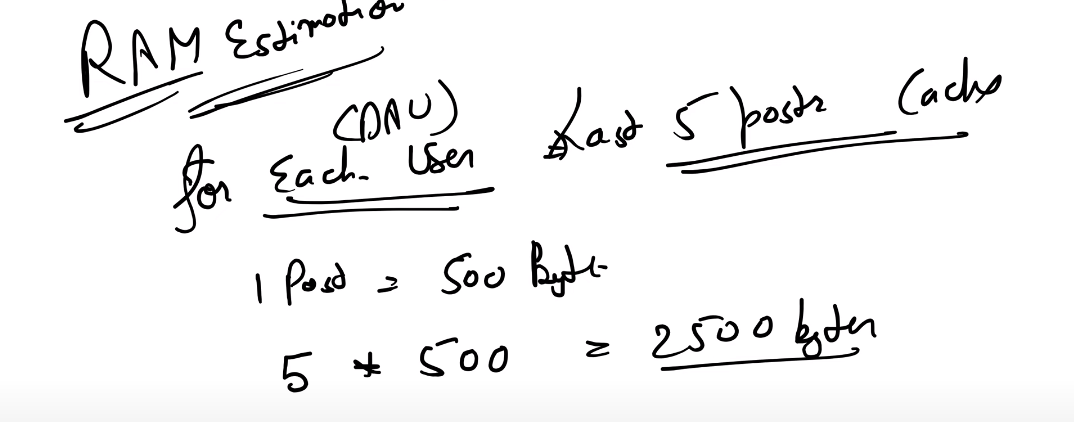 RAM Estimation
(DAU)
for Each User Last 5 posts Cache
1 Post = 500 Byte
5 * 500 = 2500 bytes